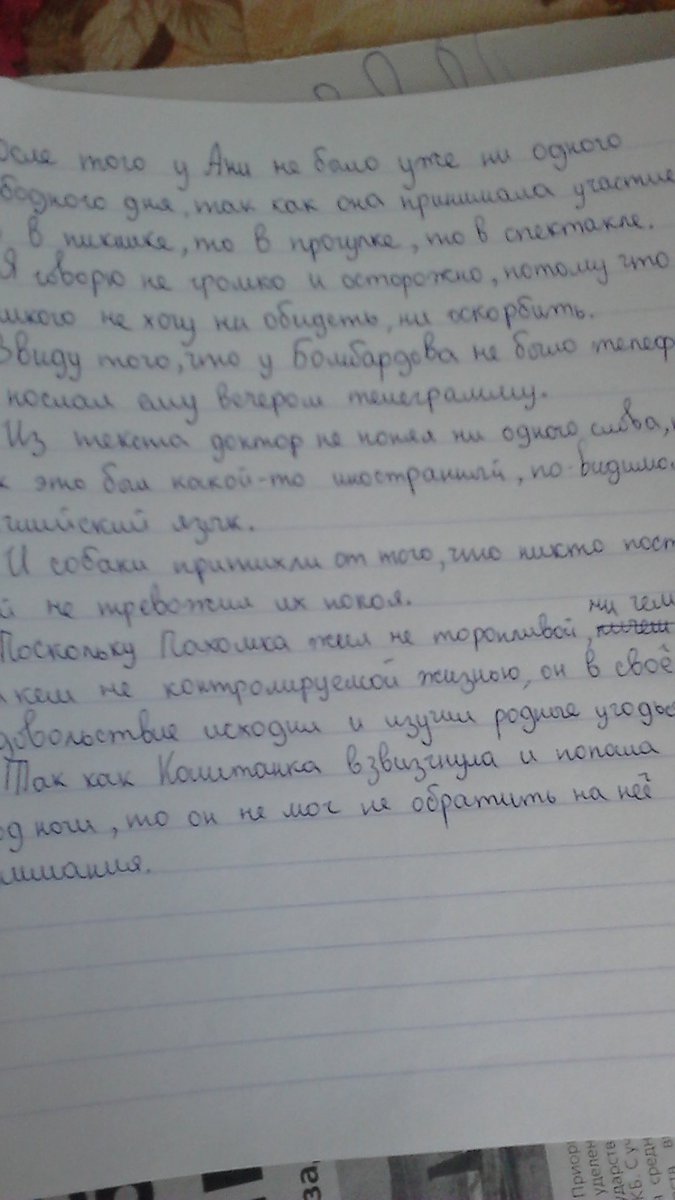 осле того у Ани не было уже ни одного
бодного дня, так как она принимала участие
в пикнике, то в прогулке, то в спектакле.
Я говорю не громко и осторожно, потому что
никого не хочу ни обидеть, ни оскорбить.
Ввиду того, что у Бомбардова не было телеф
послал ему вечером телеграмму.
Из текста доктор не понял ни одного слова,
к это был какой-то иностранный, по-видимо
глийский язык.
И собаки притихли от того, что никто пост
й не тревожил их покоя.
Поскольку Пахомка жил не торопливой, ни чем
кем не контролируемой жизнью, он в своё
довольствие исходил и изучил родные угодья
Так как Каштанка взвизгнула и попала
од ноги, то он не мог не обратить на неё
нимания.
за,
Приори
уделен
дарств
КБ. Су
средн